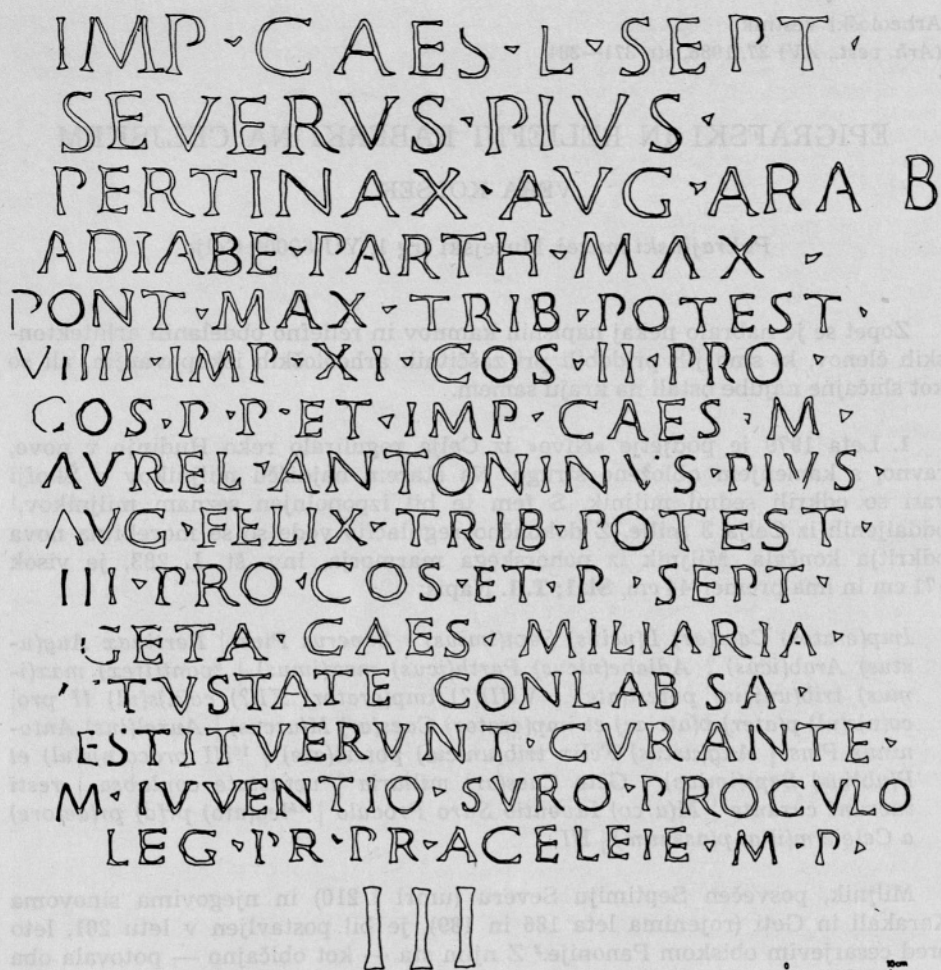 IMP · CAES · L · SEPT
SEVERVS · PIVS ·
PERTINAX · AVG · ARA B
ADIABE · PARTH · MAX ·
PONT · MAX · TRIB · POTEST ·
IMP · XI · COS · II · PRO ·
COS · P · P · ET · IMP · CAES · M ·
AVREL · ANTONINVS · PIVS ·
AVG · FELIX · TRIB · POTEST
III · PRO · COS · ET · P · SEPT ·
GETA · CAES · MILIARIA ·
VSTATE · CONLABSA ·
ESTITVERVNT · CVRANTE
M · IVVENTIO · SVRO · PROCVLO
LEG · PR · PR · A CELEIE · M · P ·
III